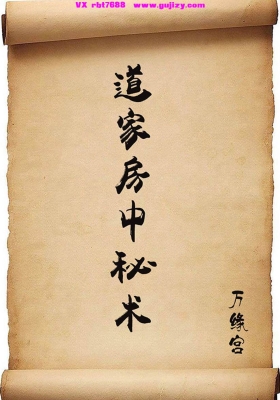 VX rbt7688 www.gujizy.com
道家房中秘术
万缘宫